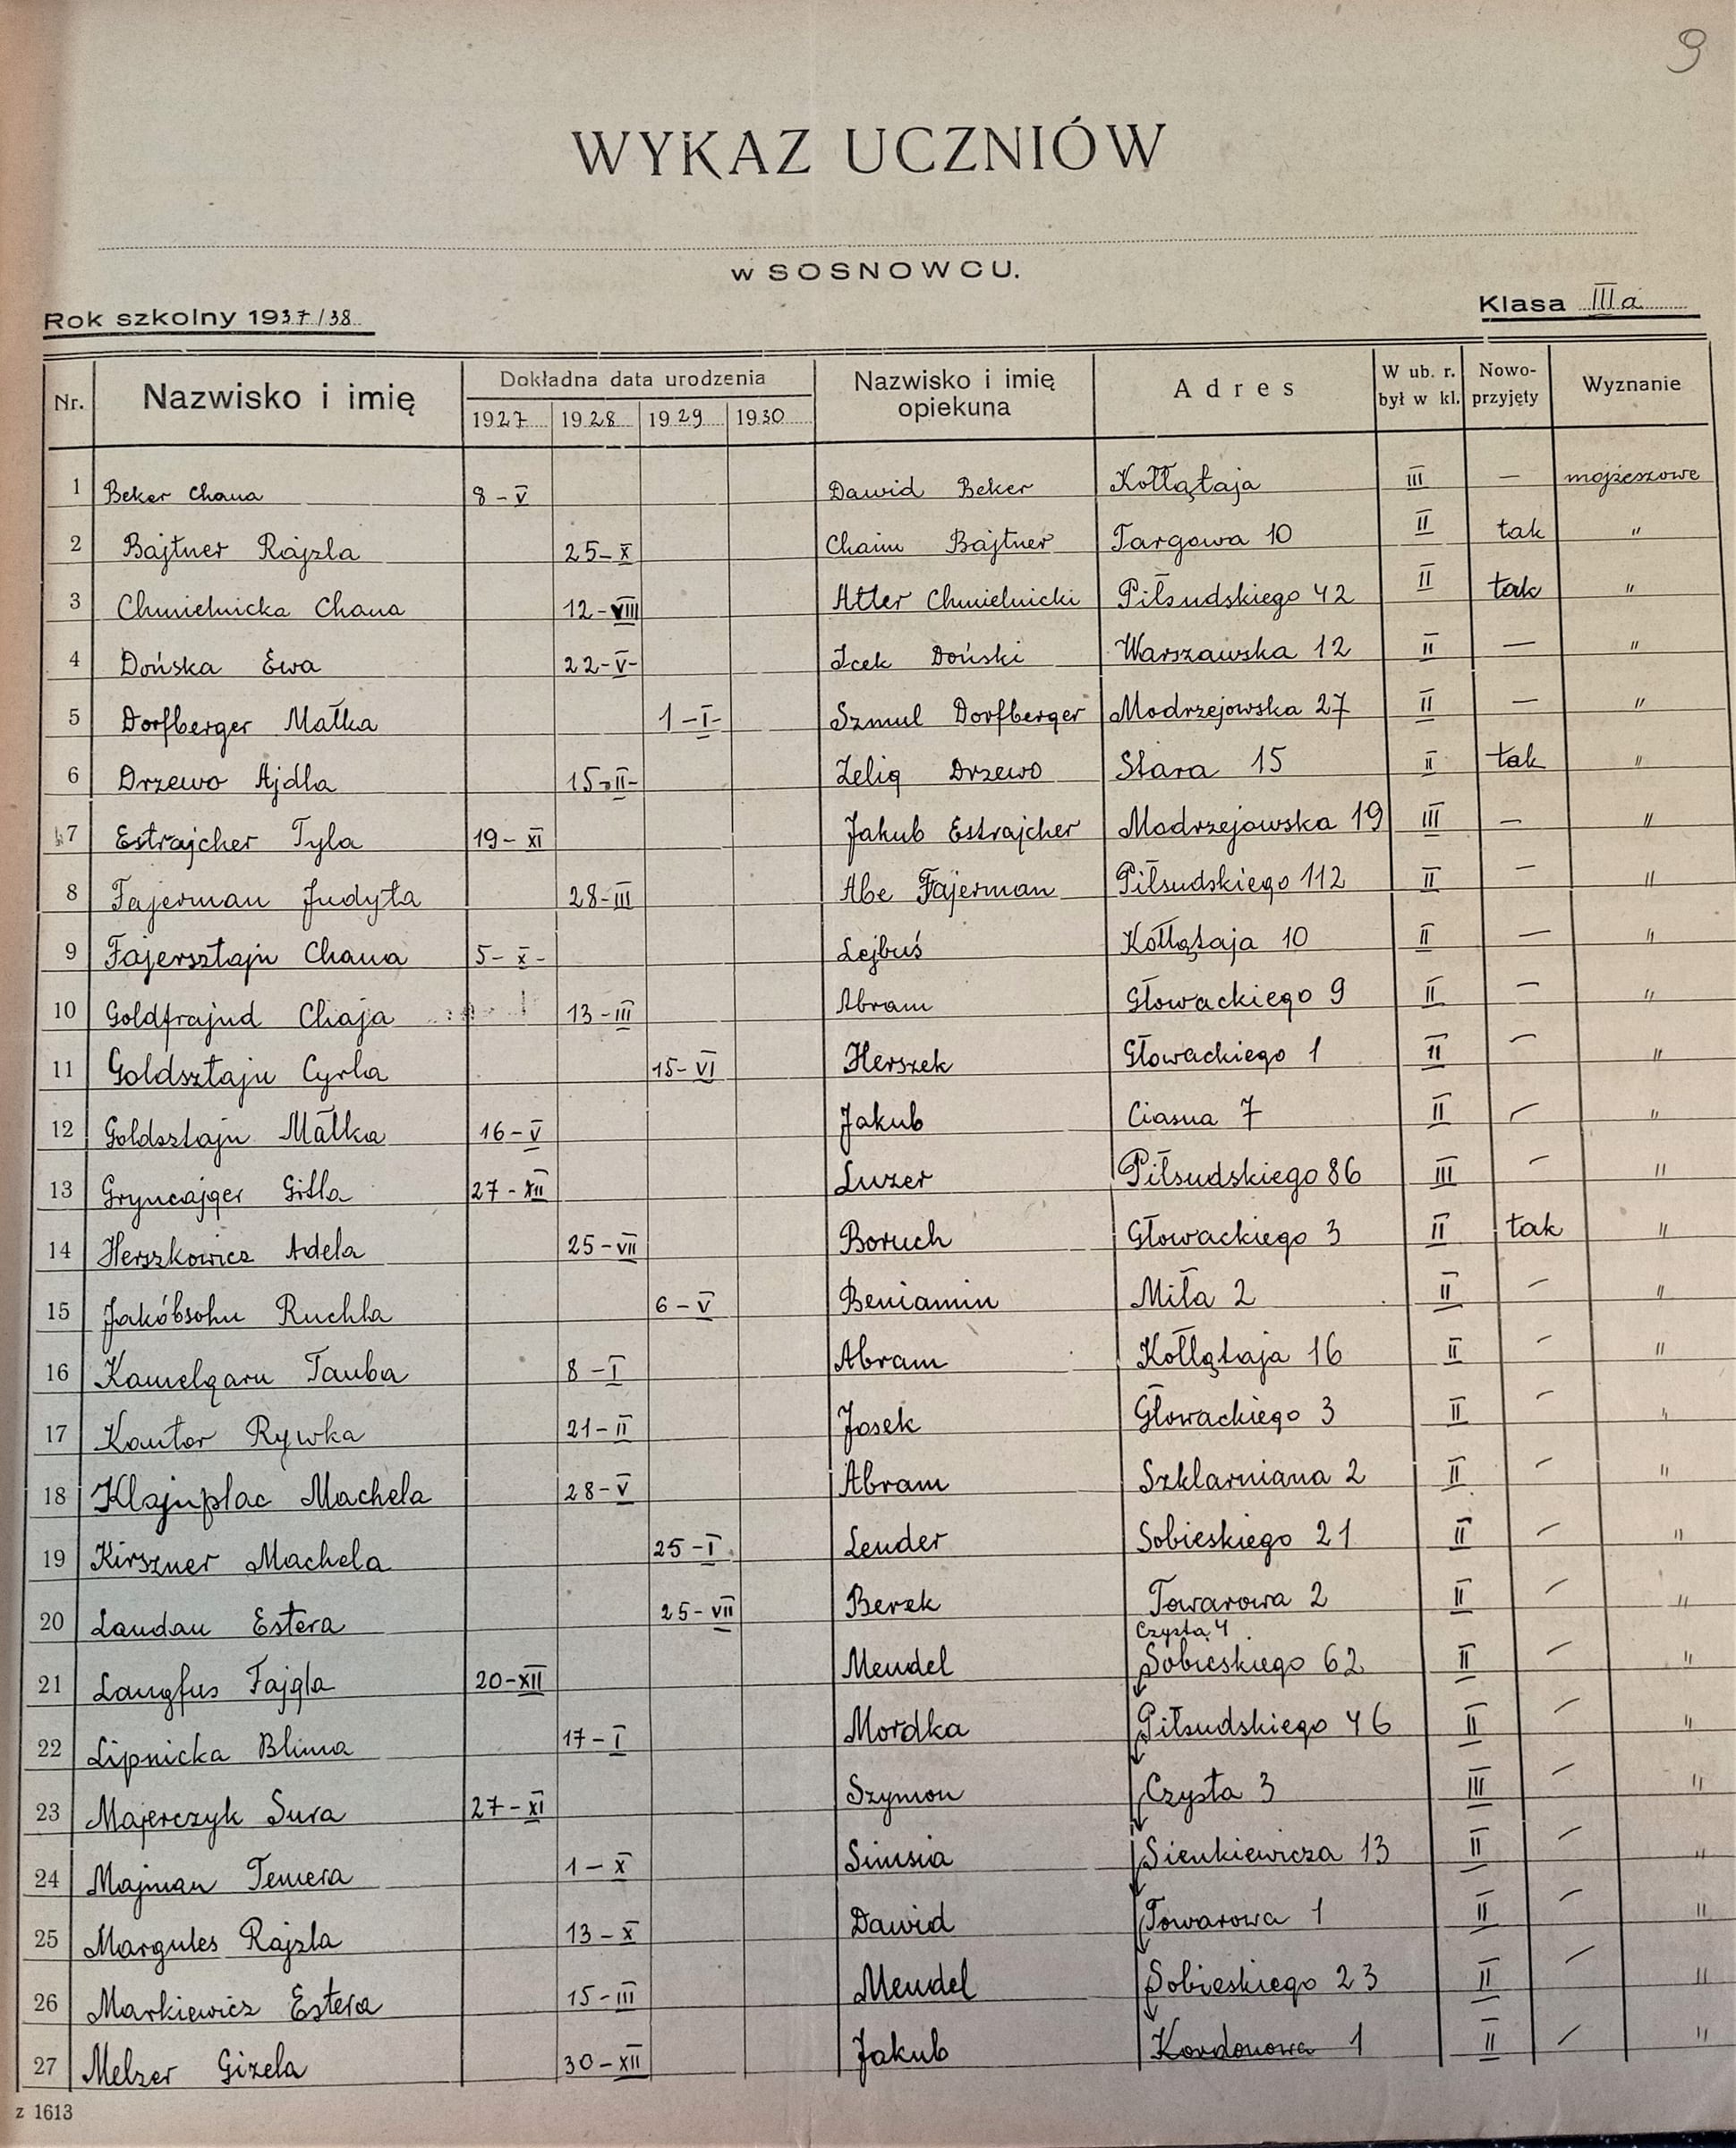 9
WYKAZ UCZNIÓW
w SOSNOWCU.
Rok szkolny 1937/38 Klasa IIIa
Nr. Nazwisko i imię Dokładna data urodzenia Nazwisko i imię opiekuna Adres W ub. r. był w kl. Nowo-przyjęty Wyznanie
1927 1928 1929 1930
1 Beker Chana 8-V Dawid Beker Kołłątaja III — mojżeszowe
2 Bajtner Rajzla 25-X Chaim Bajtner Targowa 10 II tak "
3 Chmielnicka Chana 12-VIII Alter Chmielnicki Piłsudskiego 42 II tak "
4 Dońska Ewa 22-V- Icek Doński Warszawska 12 II — "
5 Dorfberger Małka 1-I- Szmul Dorfberger Modrzejowska 27 II — "
6 Drzewo Ajdla 15-II- Zelig Drzewo Stara 15 II tak "
7 Estrajcher Tyla 19-XI Jakub Estrajcher Modrzejowska 19 III — "
8 Fajerman Judyta 28-III Abe Fajerman Piłsudskiego 112 II — "
9 Fajersztajn Chana 5-X- Lejbuś Kołłątaja 10 II — "
10 Goldfrajnd Chaja 13-III Abram Głowackiego 9 II — "
11 Goldsztajn Cyrla 15-VI Herszek Głowackiego 1 II — "
12 Goldsztajn Małka 16-V Jakub Ciasna 7 II — "
13 Gryncajger Gitla 27-XII Luzer Piłsudskiego 86 III — "
14 Herszkowicz Adela 25-VII Boruch Głowackiego 3 II tak "
15 Jakóbsohn Ruchla 6-V Beniamin Miła 2 II — "
16 Kamelgarn Tauba 8-I Abram Kołłątaja 16 II — "
17 Kantor Rywka 21-II Josek Głowackiego 3 II — "
18 Klajnplac Machela 28-V Abram Szklarniana 2 II — "
19 Kirszner Machela 25-I Lender Sobieskiego 21 II — "
20 Landau Estera 25-VII Berek Towarowa 2 II — "
Czysta 4
21 Langfus Fajgla 20-XII Mendel Sobieskiego 62 II — "
22 Lipnicka Blima 17-I Mordka Piłsudskiego 46 II — "
23 Majerczyk Sura 27-XI Szymon Czysta 3 III — "
24 Majman Temera 1-X Simsia Sienkiewicza 13 II — "
25 Margules Rajzla 13-X Dawid Towarowa 1 II — "
26 Markiewicz Estera 15-III Mendel Sobieskiego 23 II — "
27 Melzer Gizela 30-XII Jakub Kordonowa 1 II — "
z 1613